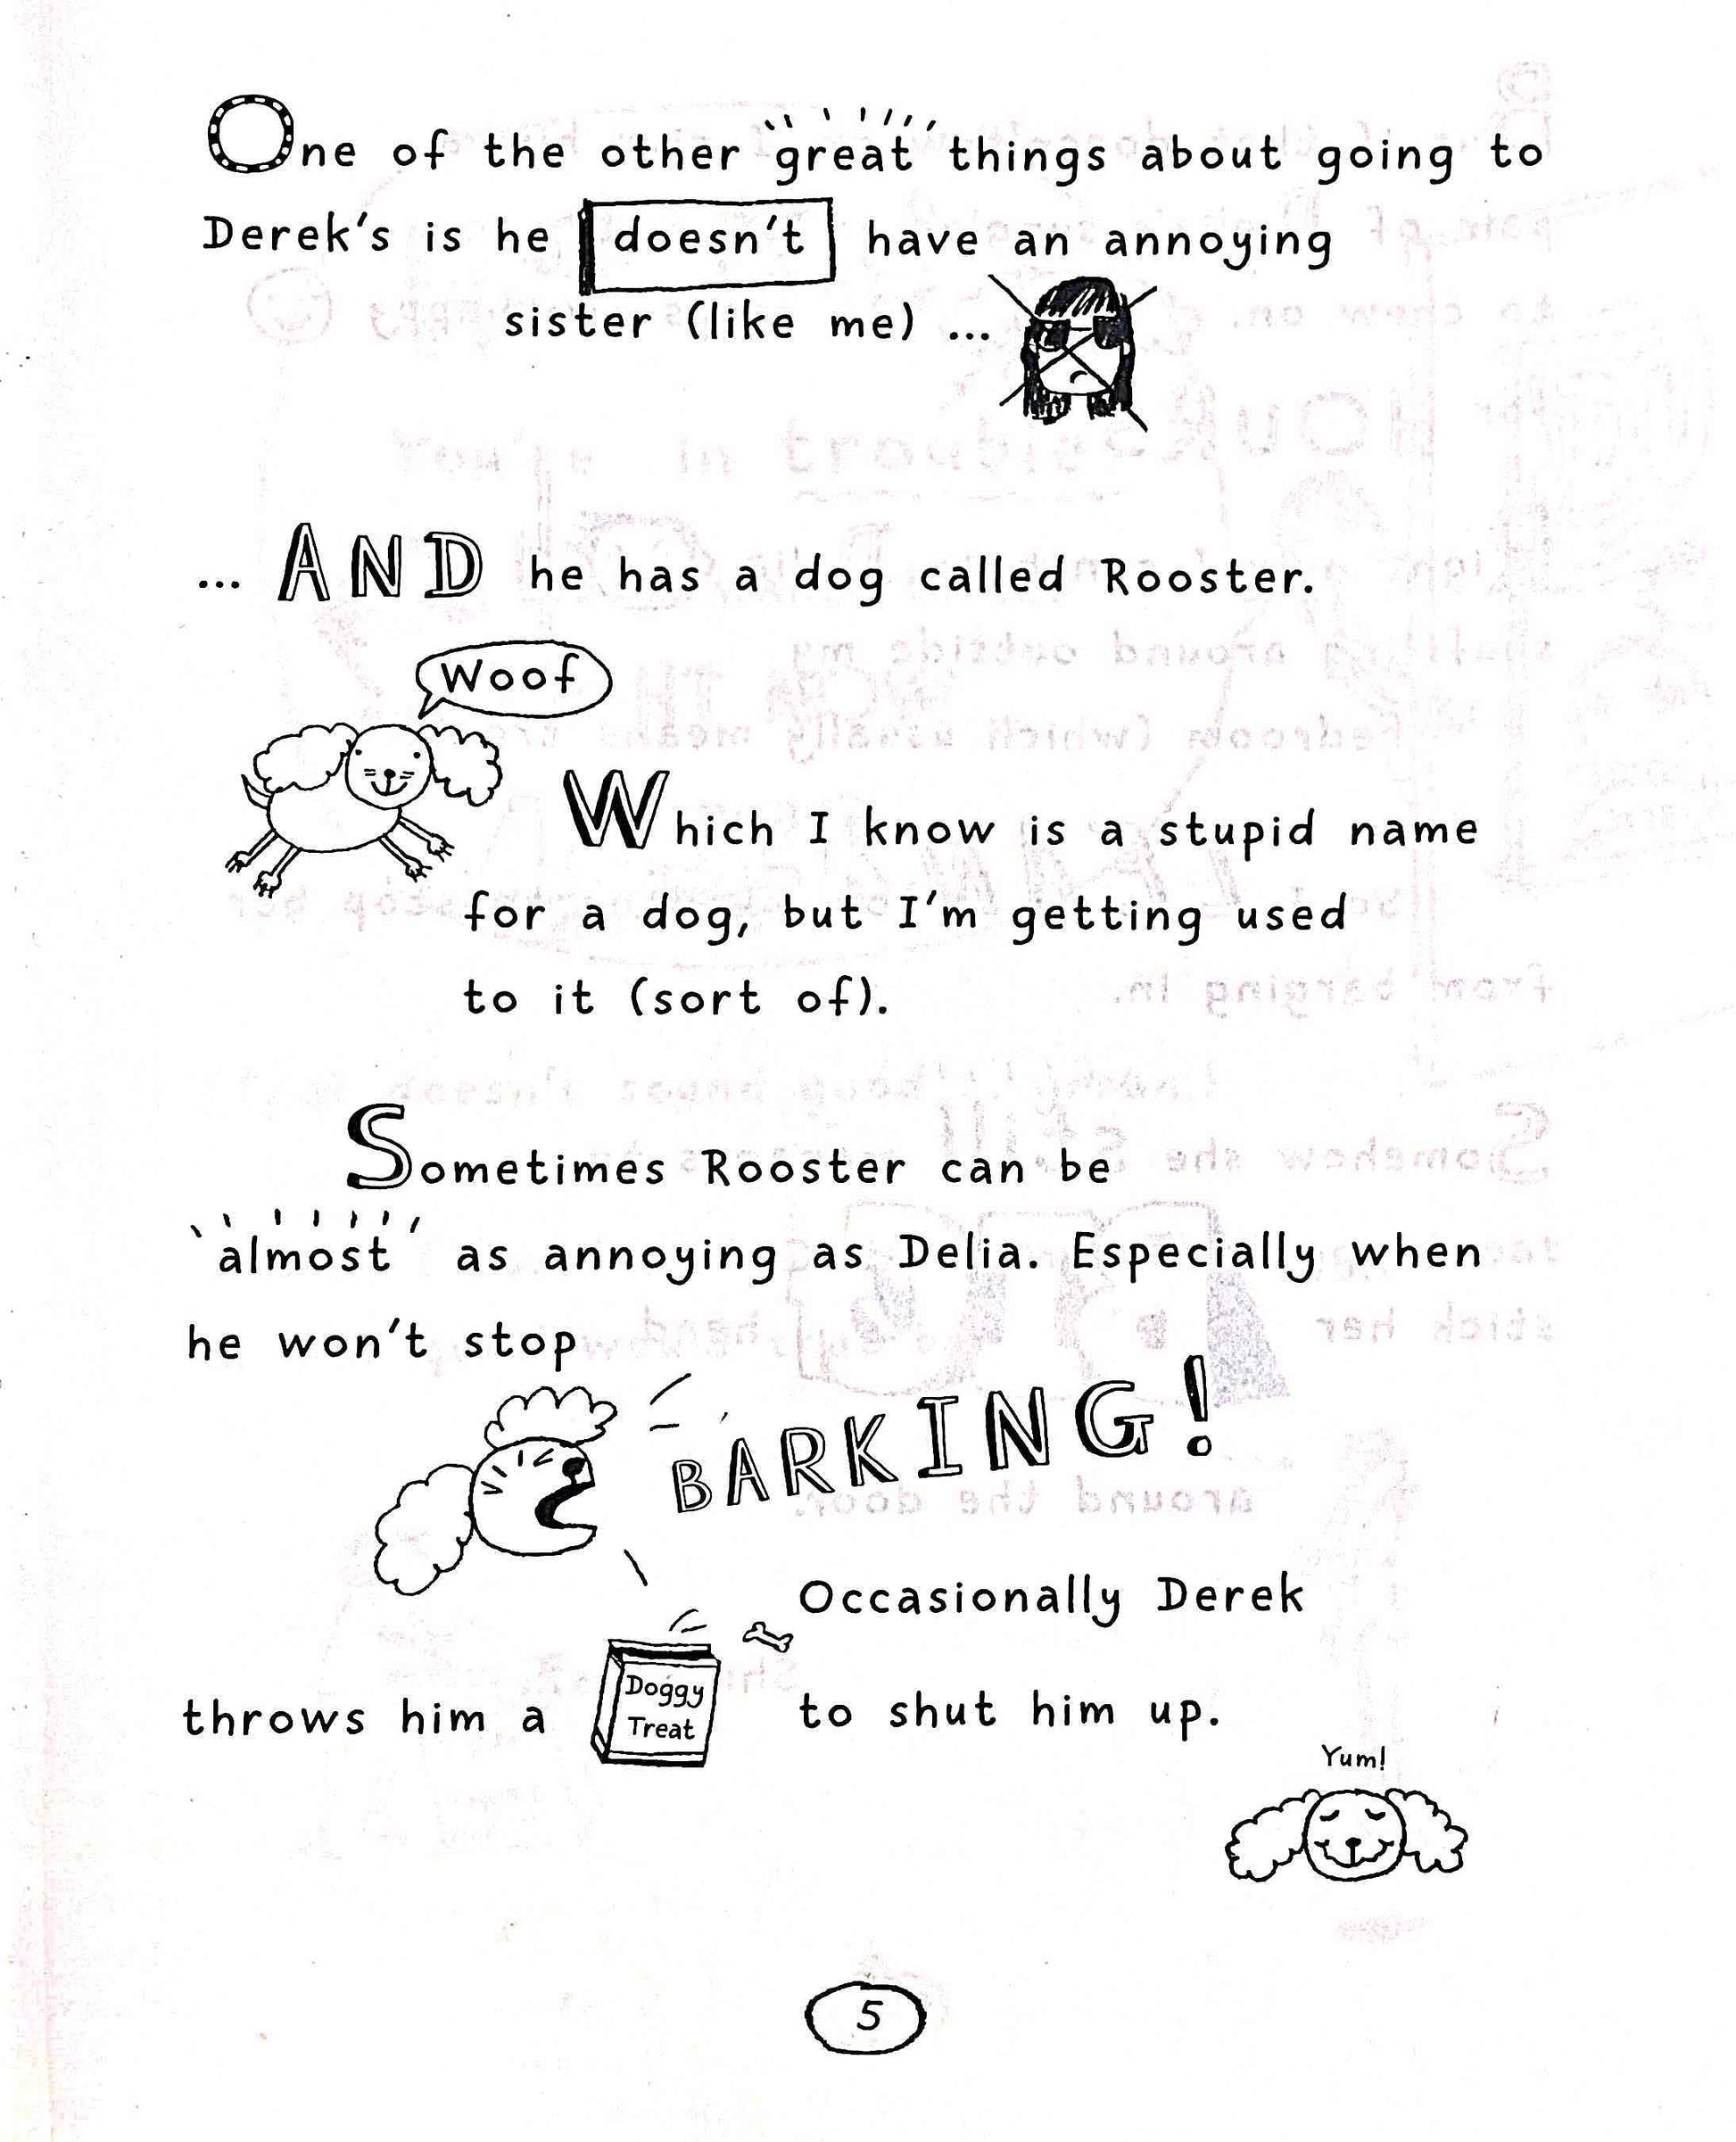 One of the other great things about going to
Derek's is he doesn't have an annoying
sister (like me) ...
... AND he has a dog called Rooster.
Woof
Which I know is a stupid name
for a dog, but I'm getting used
to it (sort of).
Sometimes Rooster can be
almost as annoying as Delia. Especially when
he won't stop
BARKING!
Occasionally Derek
throws him a Doggy Treat to shut him up.
Yum!
5